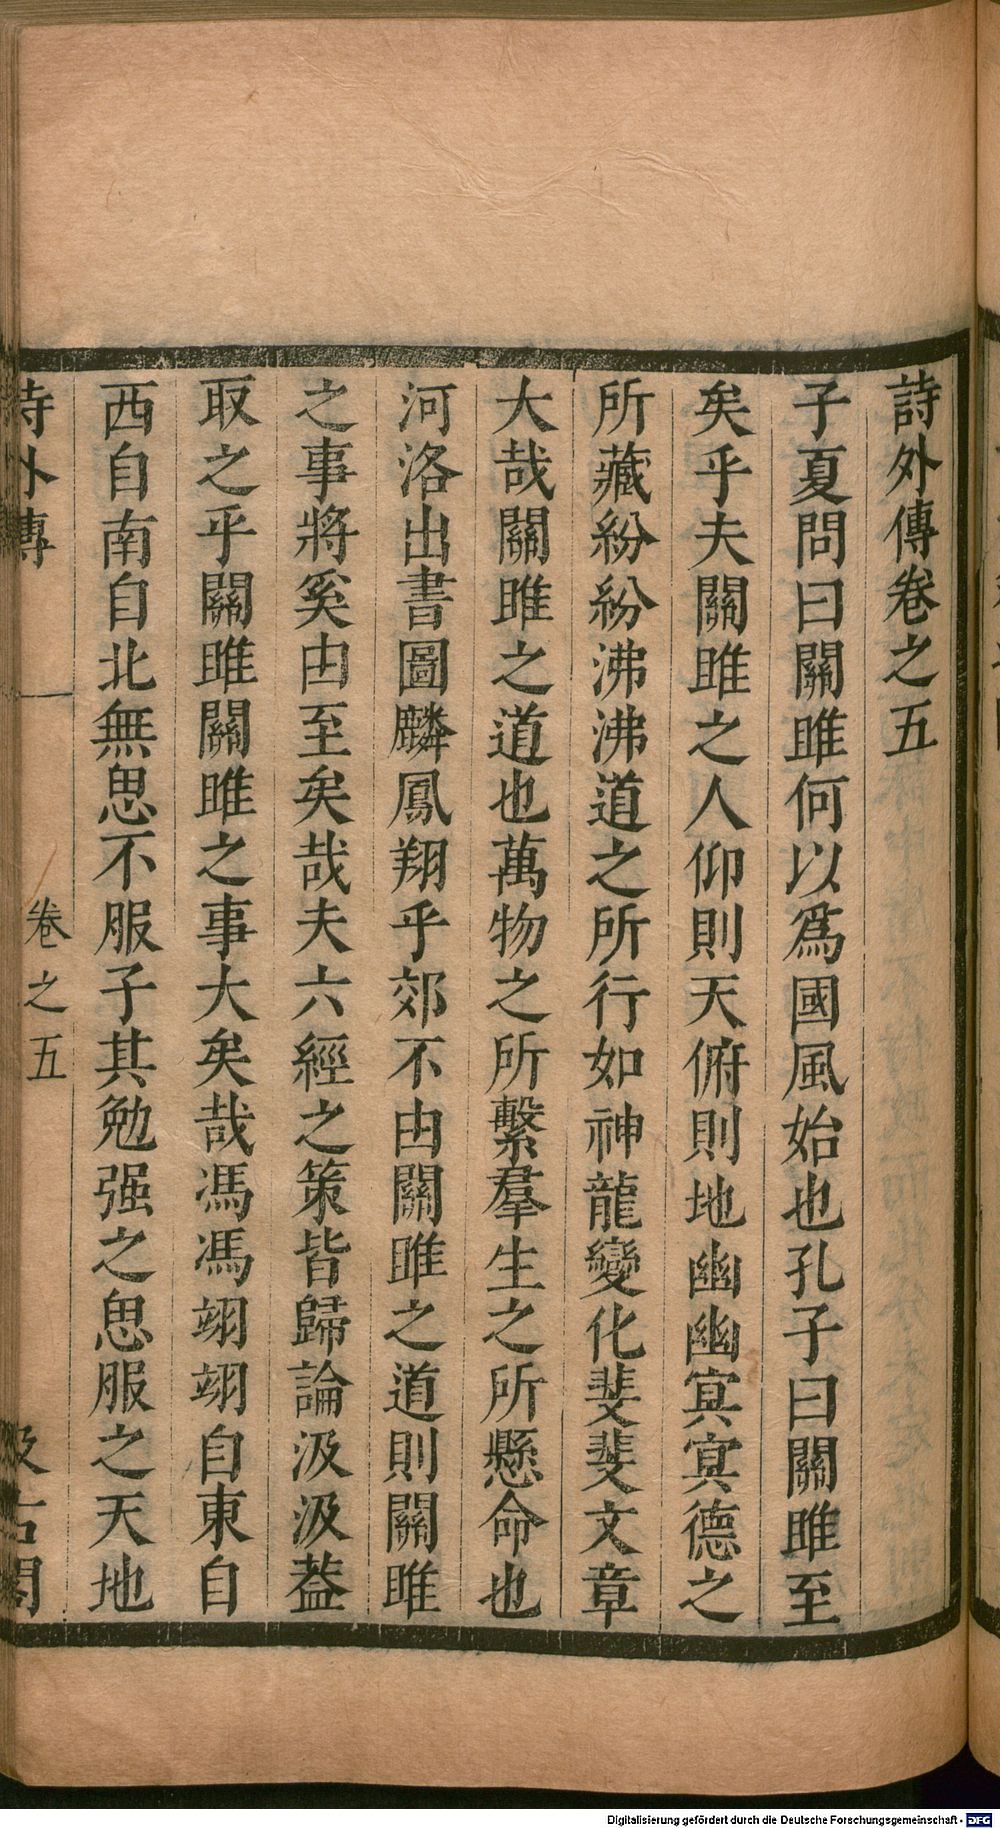 詩外傳卷之五
子夏問曰關雎何以爲國風始也孔子曰關雎至
矣乎夫關雎之人仰則天俯則地幽幽冥冥德之
所藏紛紛沸沸道之所行如神龍變化斐斐文章
大哉關雎之道也萬物之所繫羣生之所懸命也
河洛出書圖麟鳳翔乎郊不由關雎之道則關雎
之事將奚由至矣哉夫六經之策皆歸論汲汲葢
取之乎關雎關雎之事大矣哉馮馮翊翊自東自
西自南自北無思不服子其勉强之思服之天地
詩外傳 卷之五 汲古閣
Digitalisierung gefördert durch die Deutsche Forschungsgemeinschaft - DFG